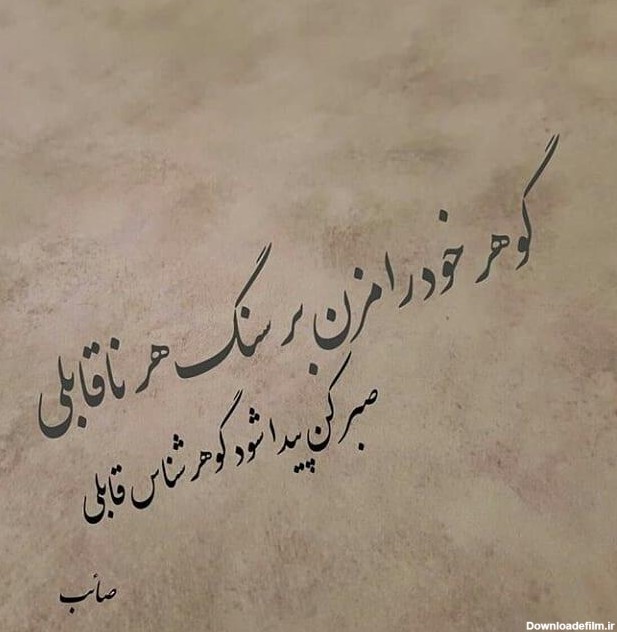 گوهر خود را مزن بر سنگ هر ناقابلی
صبر کن پیدا شود گوهر شناس قابلی
صائب
Downloadefilm.ir